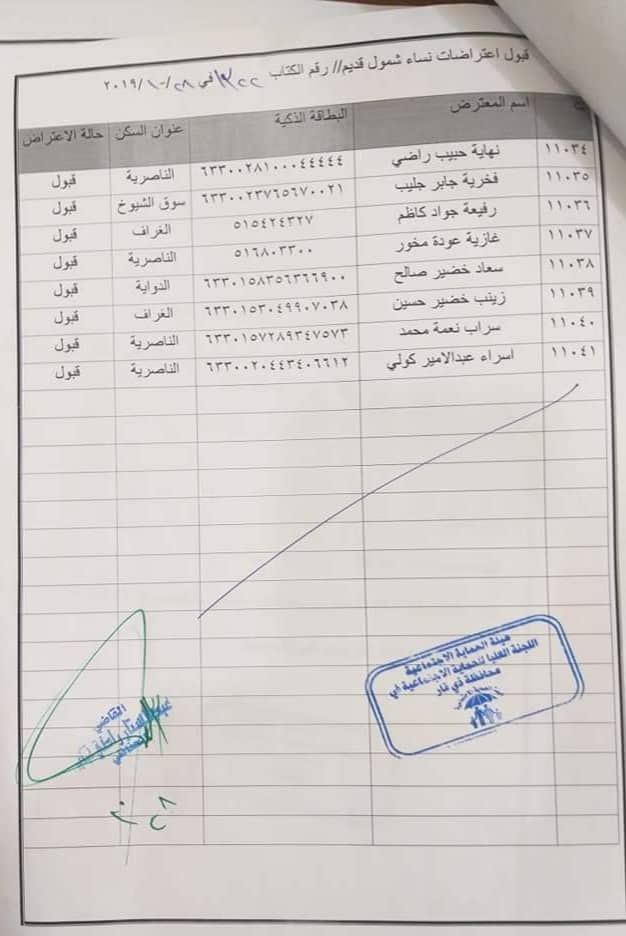 قبول اعتراضات نساء شمول قديم// رقم الكتاب في ٢٨/١٠/٢٠١٩
ت اسم المعترض البطاقة الذكية عنوان السكن حالة الاعتراض
١١٠٣٤ نهاية حبيب راضي ٦٣٣٠٠٢٨١٠٠٠٤٤٤٤٤ الناصرية قبول
١١٠٣٥ فخرية جابر جليب ٦٣٣٠٠٢٣٧٦٥٦٧٠٠٢١ سوق الشيوخ قبول
١١٠٣٦ رفيعة جواد كاظم ٥١٥٤٢٤٣٢٧ الغراف قبول
١١٠٣٧ غازية عودة مخور ٥١٦٨٠٣٣٠٠ الناصرية قبول
١١٠٣٨ سعاد خضير صالح ٦٣٣٠١٥٨٣٥٦٣٦٦٩٠٠ الدواية قبول
١١٠٣٩ زينب خضير حسين ٦٣٣٠١٥٣٠٤٩٩٠٧٠٣٨ الغراف قبول
١١٠٤٠ سراب نعمة محمد ٦٣٣٠١٥٧٢٨٩٣٤٧٥٧٣ الناصرية قبول
١١٠٤١ اسراء عبدالامير كولي ٦٣٣٠٠٢٠٤٤٣٤٠٦٦١٢ الناصرية قبول
هيئة الحماية الاجتماعية
اللجنة العليا للحماية الاجتماعية في
محافظة ذي قار
القاضي